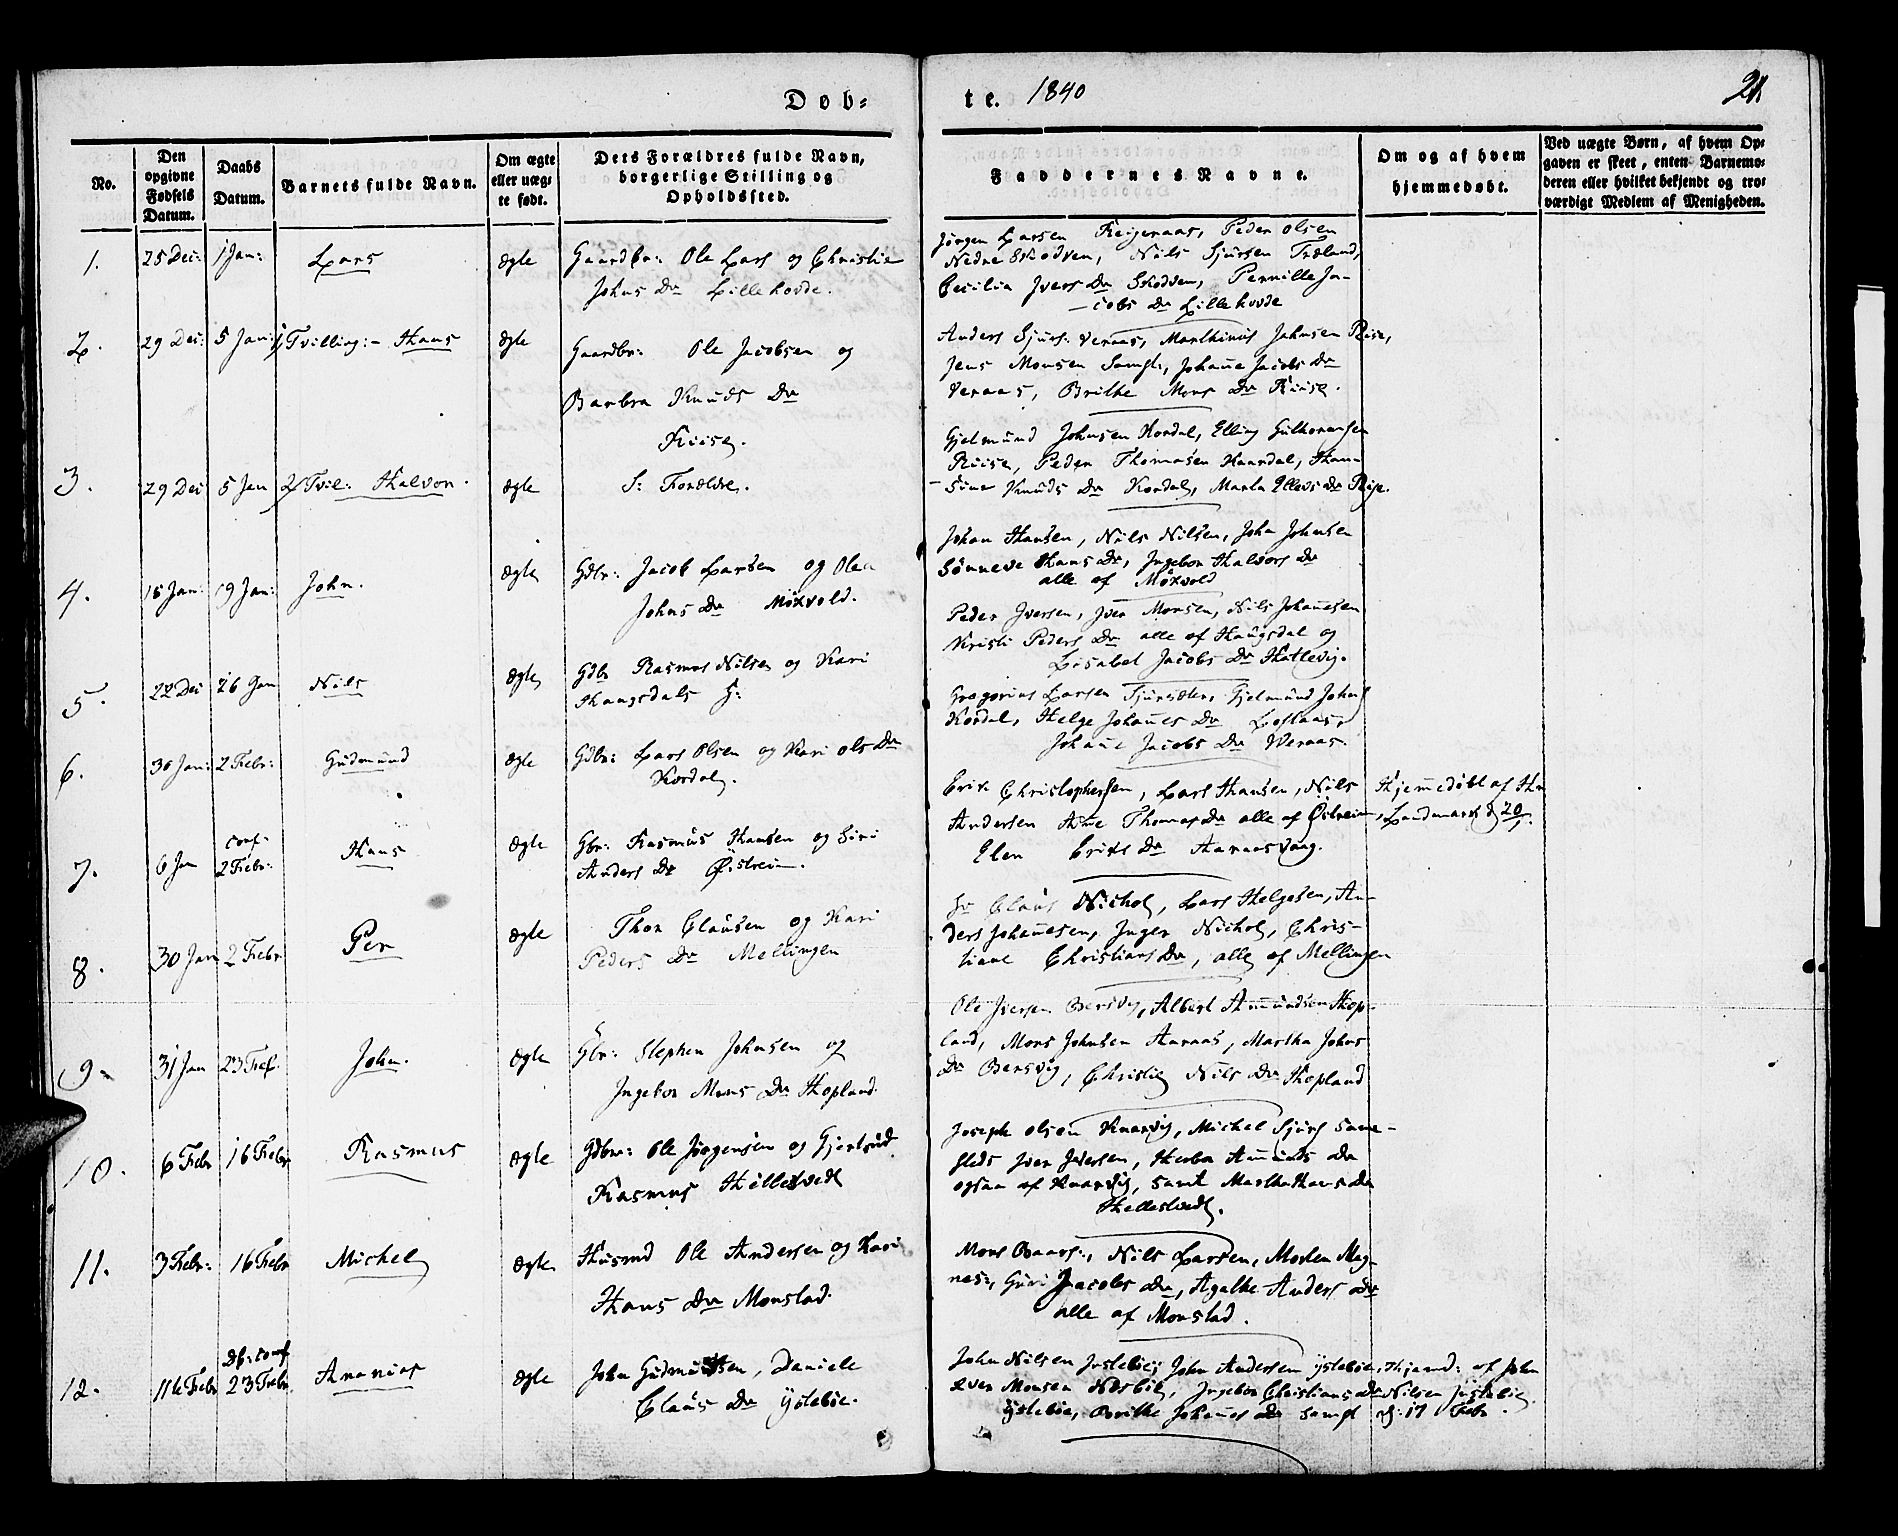 Døb=
te. 1840
21
No.
Den opgivne Fødsels Datum.
Daabs Datum.
Barnets fulde Navn.
Om ægte eller uægte født.
Dets Forældres fulde Navn, borgerlige Stilling og Opholdssted.
Faddernes Navne.
Om og af hvem hjemmedøbt.
Ved uægte Børn, af hvem Opgaven er skeet, enten Barnemoderen eller hvilket bekjendt og troværdigt Medlem af Menigheden.
1. 25 Dec: 1 Jan: Lars ægte
Gaardbr: Ole Lars og Christie
Johns Dr Lillehovde.
Jørgen Larsen Peder Olsen
Nedre Skodven, Niels Sjursen Træland,
Cecilia Ivers Dr Skodven, Pernille Ja-
cobs Dr Lillehovde
2. 29 Dec: 5 Jan: 1) Tvilling:- Hans ægte
Gaardbr: Ole Jacobsen og
Barbra Knuds Dr
Riise.
Anders Sjurs: Veraas, Marthinus Johnsen Riise,
Jens Monsen Samst:, Johanne Jacobs Dr
Veraas, Brithe Mons Dr Riise.
3. 29 Dec 5 Jan 2) Tvil: Halvor. ægte
S: Forældre.
Gjelmund Johnsen Kordal, Elling
Riise, Peder Thomasen Haardal, Han-
sine Knuds Dr Kordal, Marta Ellevs Dr Riise.
4. 15 Jan: 19 Jan: John. ægte
Gdbr: Jacob Larsen og Olea
Johns Dr Møxvold.
Johan Hansen, Nils Nilsen, John Johnsen
Sønneve Hans Dr, Ingebor Halvors Dr
alle af Møxvold
5. 22 Dec 26 Jan Nils ægte
Gdbr Rasmus Nilsen og Kari
Haugsdals
Peder Iversen, Iver Monsen, Nils Johannesen
Kristi Peders Dr alle af Haugsdal og
Lisabet Jacobs Dr Hatlevig.
6. 30 Jan: 2 Febr: Gudmund ægte
Gdbr: Lars Olsen og Kari Ols Dr
Kordal.
Gregorius Larsen Gjelmund Johns
Kordal, Helge Johannes Dr
Johanne Jacobs Dr Weraas.
7. 6 Jan conf: 2 Febr: Hans ægte
Gbr: Rasmus Hansen og Siri
Anders Dr Østreim.
Erik Christophersen, Lars Hansen, Nils
Andersen Ane Thomas Dr alle af Østreim,
Elen Eriks Dr Aaraasvaag.
Hjemmedøbt af Hr
Landmark d 20
8. 30 Jan 2 Febr Per ægte
Thor Clausen og Kari
Peders Dr Mellingen
Hr Claus Nichol, Lars Helgesen, An-
ders Johannesen, Inger Nichol, Chris-
tiane Christians Dr, alle af Mellingen
9. 31 Jan 23 Feb. John. ægte
Gbr: Stephen Johnsen og
Ingebor Mons Dr Hopland.
Ole Iversen Bersvig, Albert Amundsen Hop-
land, Mons Johnsen Aaraas, Martha Johns
Dr Bersvig, Christie Nils Dr Hopland
10. 6 Febr 16 Febr Rasmus ægte
Gdbr: Ole Jørgensen og Gjertrud
Rasmus Hillesvedt
Joseph Olsen Knarvig, Michel Sjurs same-
steds Iver Iversen, Herbor Amunds Dr
ogsaa af Knarvig, samt Martha Hans Dr
Hellesvedt.
11. 3 Febr: 16 Febr Michel ægte
Husmd Ole Andersen og Kari
Hans Dr Monstad.
Mons Baars:, Nils Larsen, Morten Mag-
nes:, Guri Jacobs Dr, Agathe Anders Dr
alle af Monstad.
12. 11te Febr Db: conf 23 Febr. Ananias ægte
John Gudmundsen, Daniele
Claus Dr Ystebøe.
John Nilsen Ystebøe, John Andersen Ystebøe,
Iver Monsen Ingebor Christians Dr
Ystebøe, Brithe Johannes Dr samst
Hjemd: af John
Nilsen Ystebøe
d: 17 Febr.